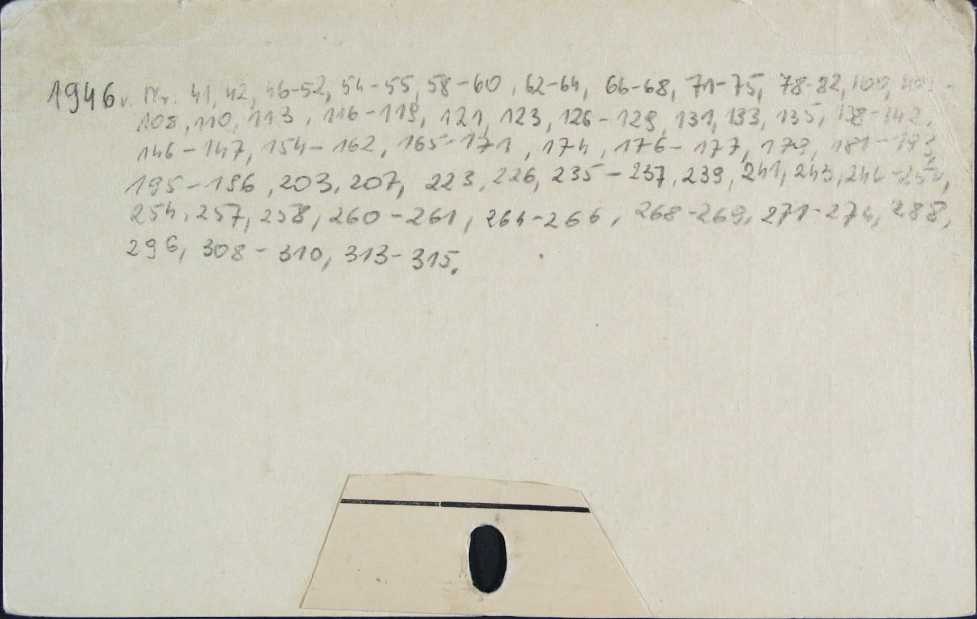 1946 v. Nr. 41, 42, 46-52, 54-55, 58-60, 62-64, 66-68, 71-75, 78-82,
108, 110, 113, 116-119, 121, 123, 126-129, 131, 133, 135, 138-142,
146-147, 154-162, 165-171, 174, 176-177, 179, 181-193,
195-196, 203, 207, 223, 226, 235-237, 239, 241, 243,
254, 257, 258, 260-261, 264-266, 268-269, 271-274, 288,
296, 308-310, 313-315.